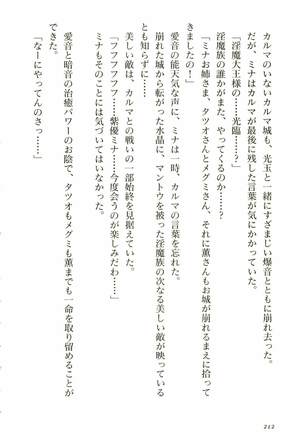 カルマのいないカルマ城も、光玉と一緒にすざまじい爆音とともに崩れ去った。
だが、ミナはカルマが最後に残した言葉が気にかかっていた。
「淫魔大王様の……光臨……?」
淫魔族の誰かがまた、やってくるのか……?
「ミナお姉さま、タツオさんとメグミさん、それに薫さんもお城が崩れるまえに拾って
きましたの!」
愛音の能天気な声に、ミナは一時、カルマの言葉を忘れた。
崩れた城から転がった水晶に、マントウを被った淫魔族の次なる美しい敵が映っている
とも知らずに……。
美しい敵は、カルマとの戦いの一部始終を見据えていた。
「フフフフフ……紫優ミナ……今度会うのが楽しみだわ……」
ミナもそのことには気づいてはいなかった。
愛音と暗音の治癒パワーのお陰で、タツオもメグミも薫までも一命を取り留めることが
できた。
「なーにやってんのさっ……」
212